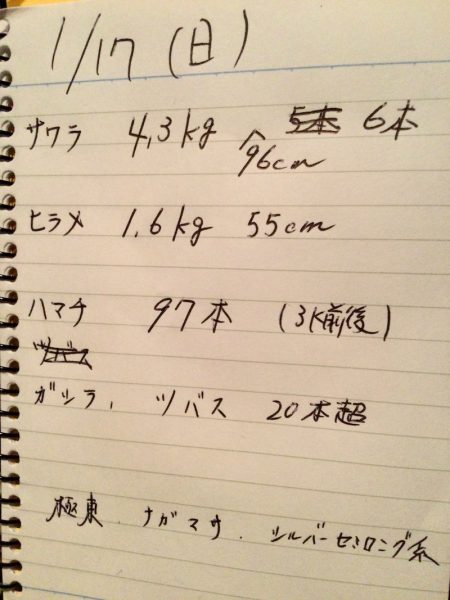 1/17(日)
サワラ 4.3kg 96cm 5本 6本
ヒラメ 1.6kg 55cm
ハマチ 97本 (3K前後)
ツバス
ガシラ、ツバス 20本超
極東、ナガマサ、シルバーセミロング系